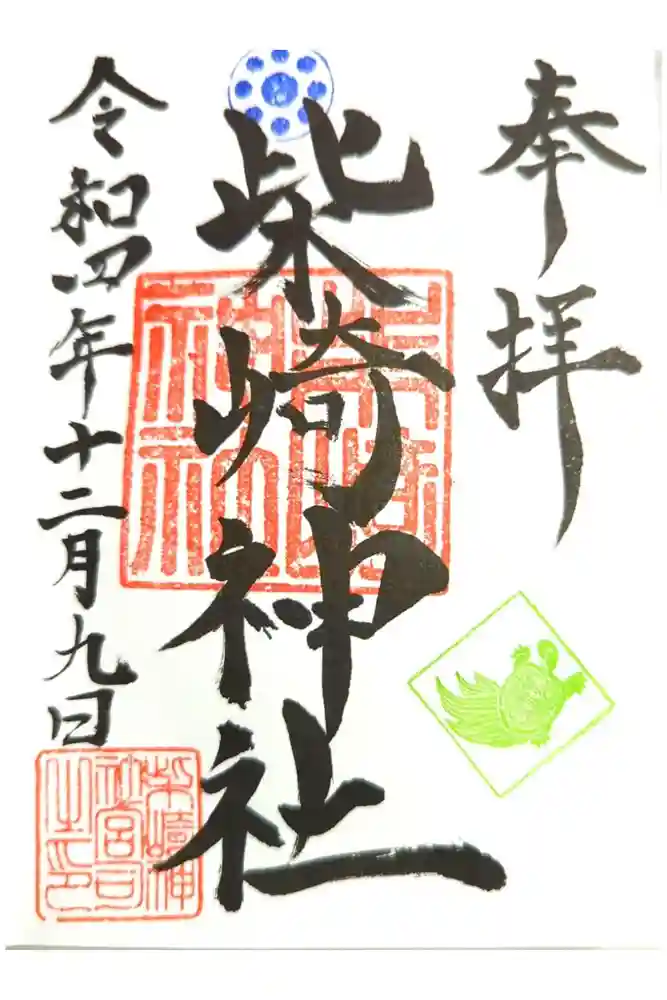 奉拝
柴崎神社
柴崎
神社
令和四年十二月九日
柴崎神
社宮司
之印